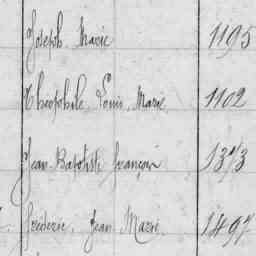 Joseph Marie 1195
Theophile, Louis, Marie 1102
Jean-Baptiste François 1373
Frédéric, Jean Marie 1497